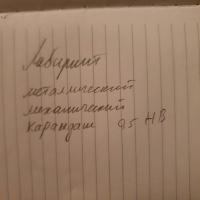 Лабиринт
металлический
механический
карандаш 0.5 HB